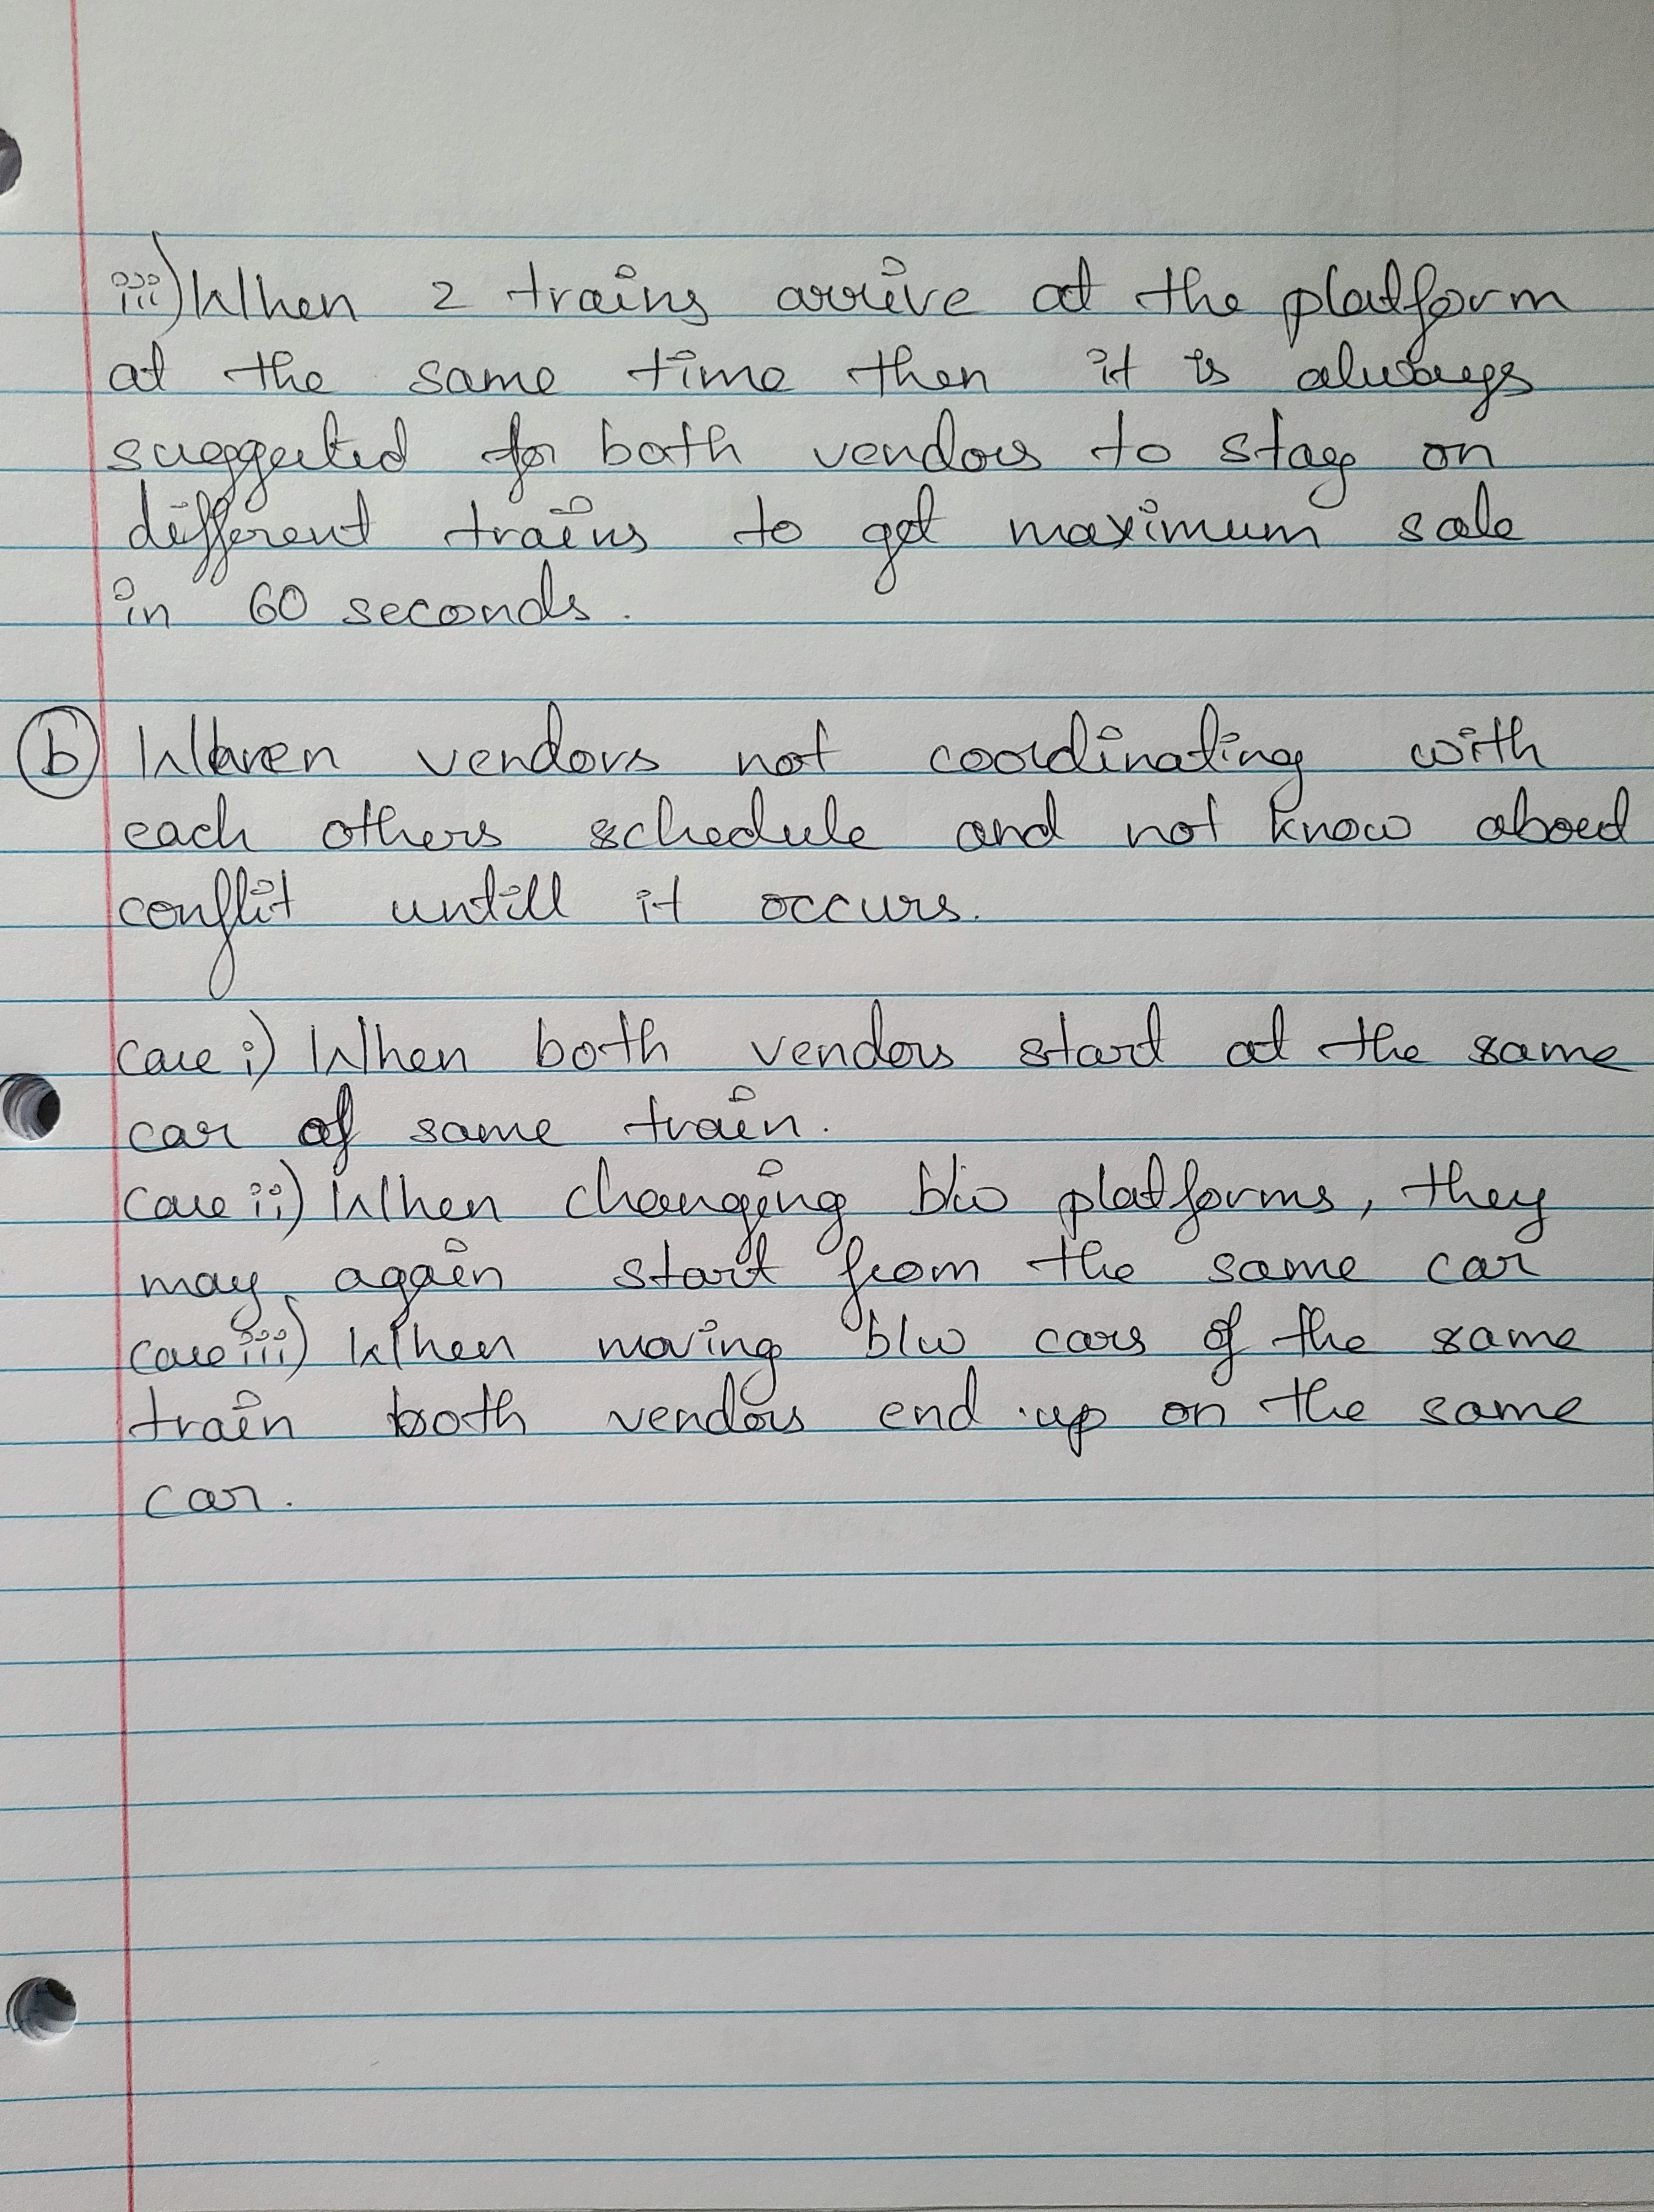 iii) When 2 trains arrive at the platform
at the same time then it is always
suggested for both vendors to stay on
different trains to get maximum sale
in 60 seconds.
b When vendors not coordinating with
each others schedule and not know about
conflit untill it occurs.
case i) When both vendors start at the same
car of same train.
case ii) When changing b/w platforms, they
may again start from the same car
case iii) When moving b/w cars of the same
train both vendors end up on the same
car.